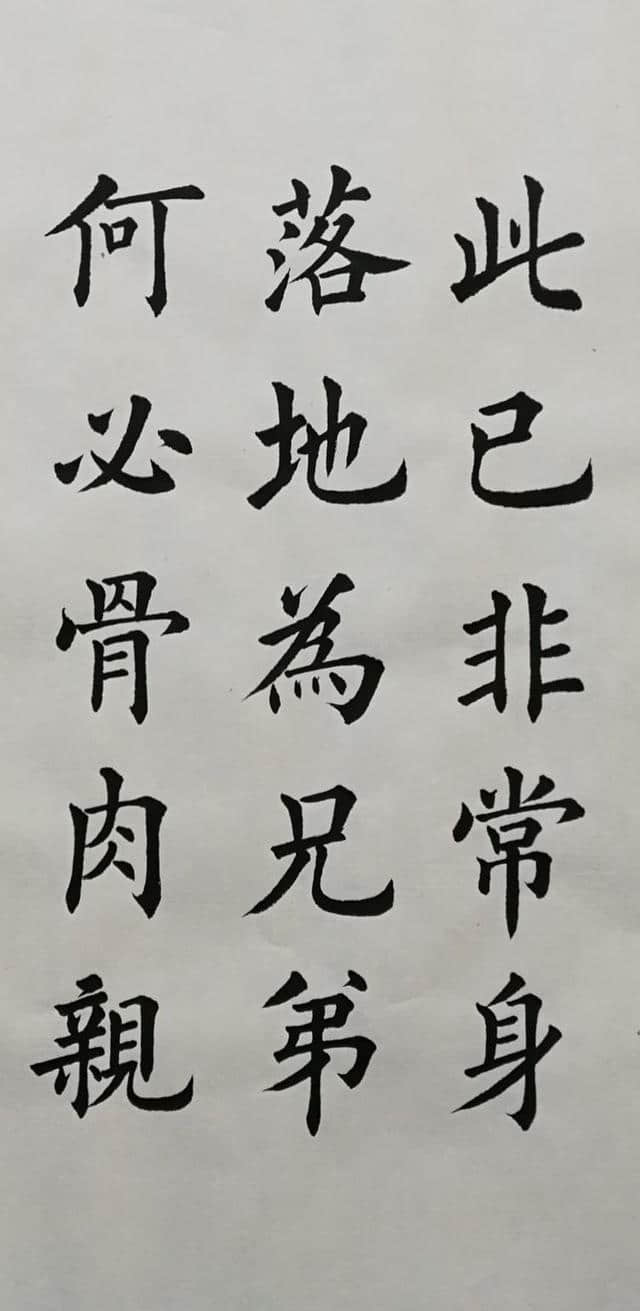 此已非常身
落地為兄弟
何必骨肉親